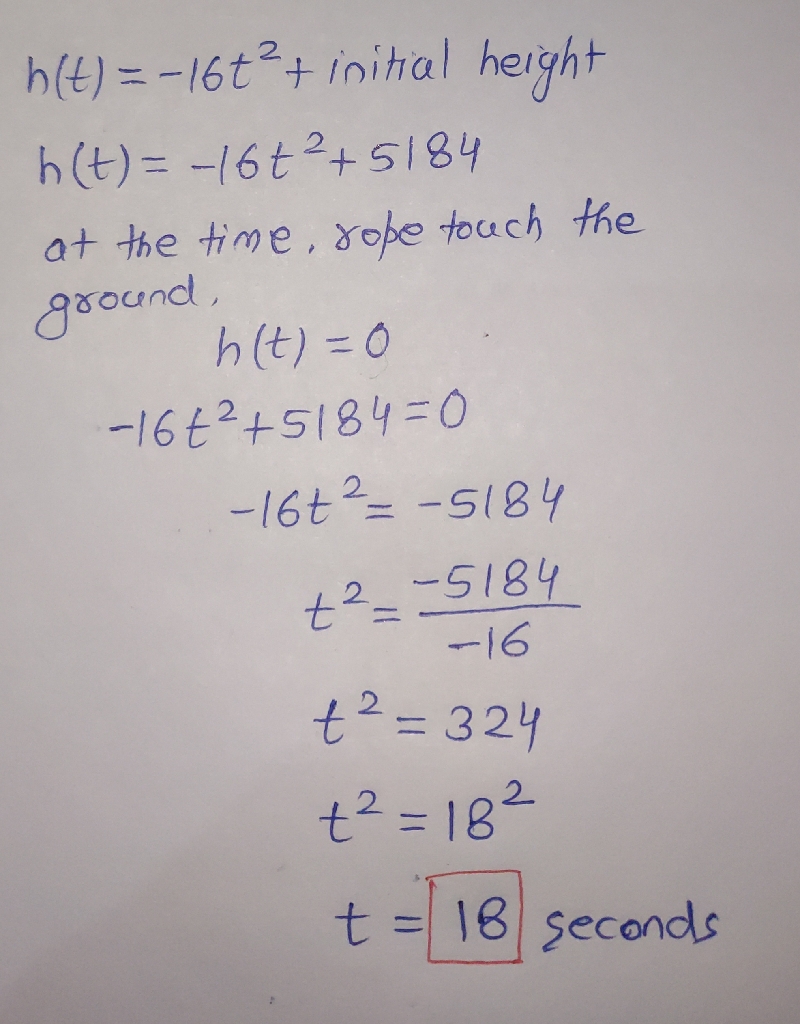 h(t) = -16t² + initial height
h(t) = -16t² + 5184
at the time, rope touch the
ground,
h(t) = 0
-16t² + 5184 = 0
-16t² = -5184
t² = -5184 / -16
t² = 324
t² = 18²
t = 18 seconds